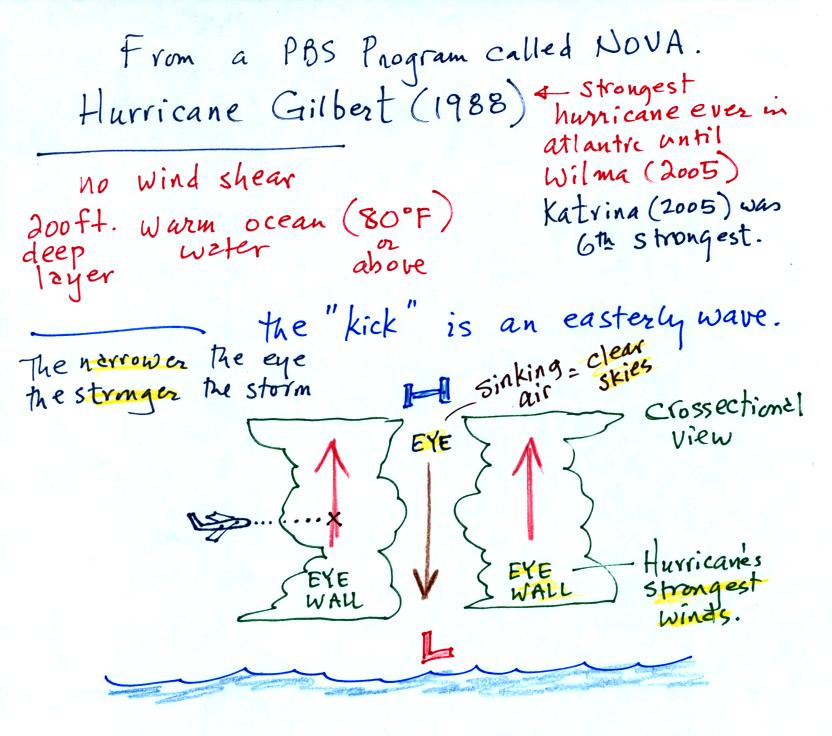 From a PBS Program called NOVA.
Hurricane Gilbert (1988)
← strongest
hurricane ever in
atlantic until
Wilma (2005)
Katrina (2005) was
6th strongest.
no wind shear
200ft. warm ocean (80°F)
deep water or
layer above
the "kick" is an easterly wave.
The narrower the eye
the stronger the storm
sinking = clear
air skies
H
EYE
crossectional
view
x
EYE
WALL
EYE
WALL
Hurricane's
strongest
winds.
L